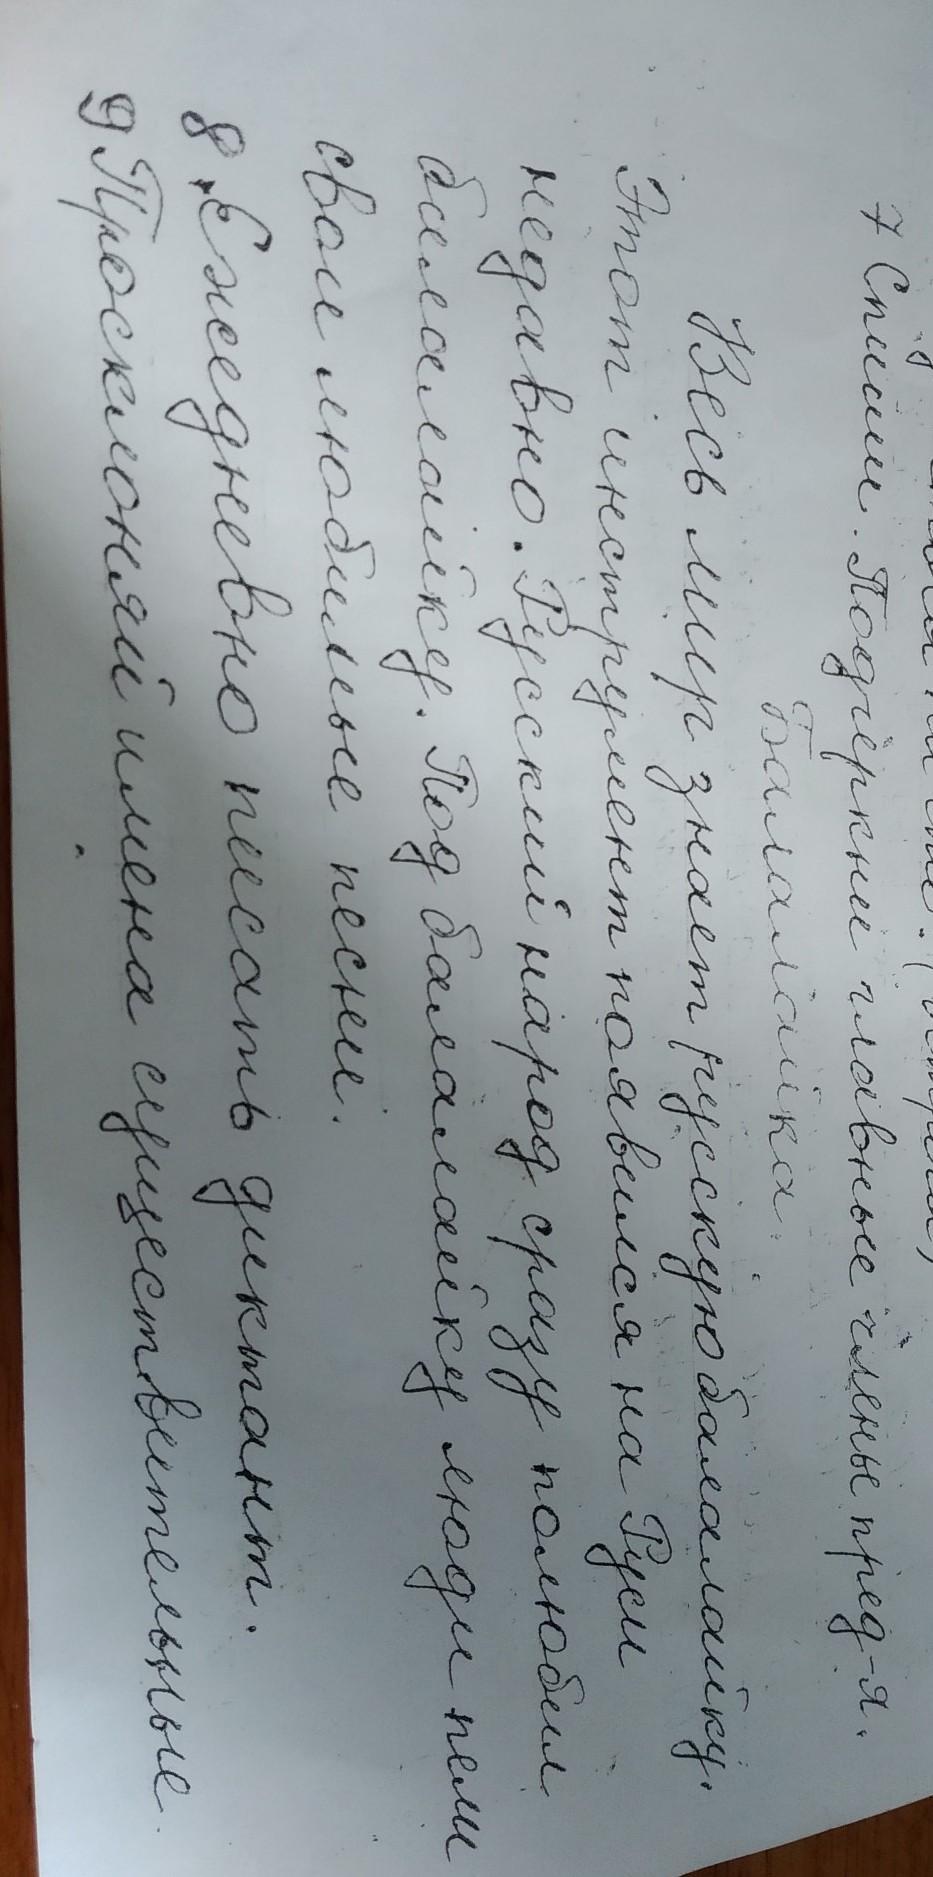 7 Спиши. Подчеркни главные члены пред-я.
Балалайка.
Весь мир знает русскую балалайку.
Этот инструмент появился на Руси
недавно. Русский народ сразу полюбил
балалайку. Под балалайку люди пели
свои любимые песни.
8. Ежедневно писать диктант.
9 Просклоняй имена существительные